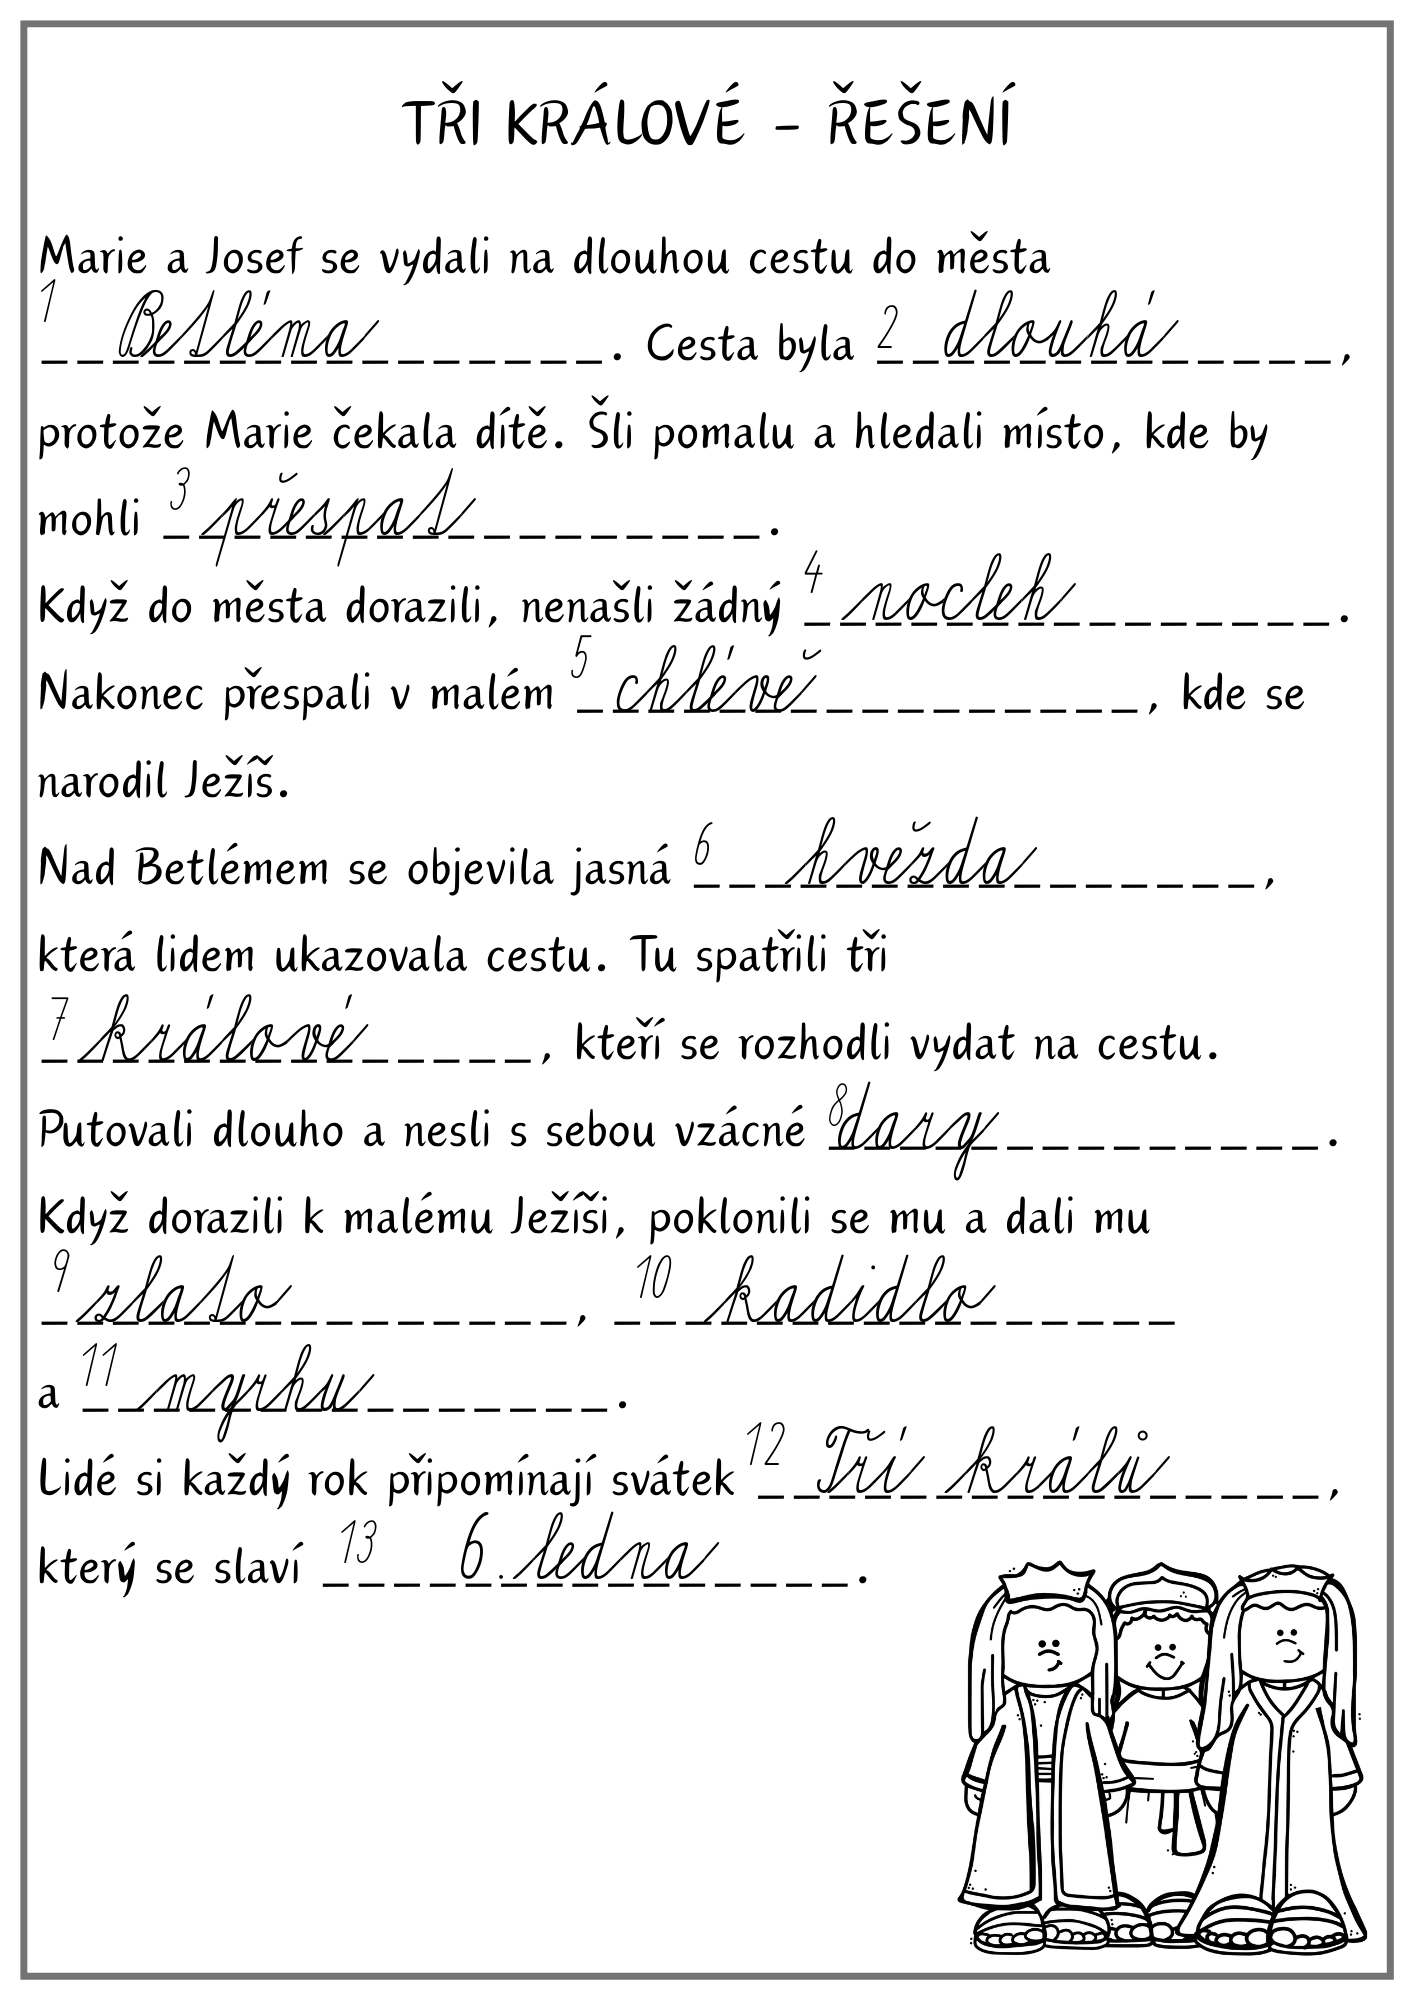 TŘI KRÁLOVÉ - ŘEŠENÍ
Marie a Josef se vydali na dlouhou cestu do města
1 Betléma. Cesta byla 2 dlouhá,
protože Marie čekala dítě. Šli pomalu a hledali místo, kde by
mohli 3 přespat.
Když do města dorazili, nenašli žádný 4 nocleh.
Nakonec přespali v malém 5 chlévě, kde se
narodil Ježíš.
Nad Betlémem se objevila jasná 6 hvězda,
která lidem ukazovala cestu. Tu spatřili tři
7 králové, kteří se rozhodli vydat na cestu.
Putovali dlouho a nesli s sebou vzácné 8 dary.
Když dorazili k malému Ježíši, poklonili se mu a dali mu
9 zlato, 10 kadidlo
a 11 myrhu.
Lidé si každý rok připomínají svátek 12 Tří králů,
který se slaví 13 6. ledna.